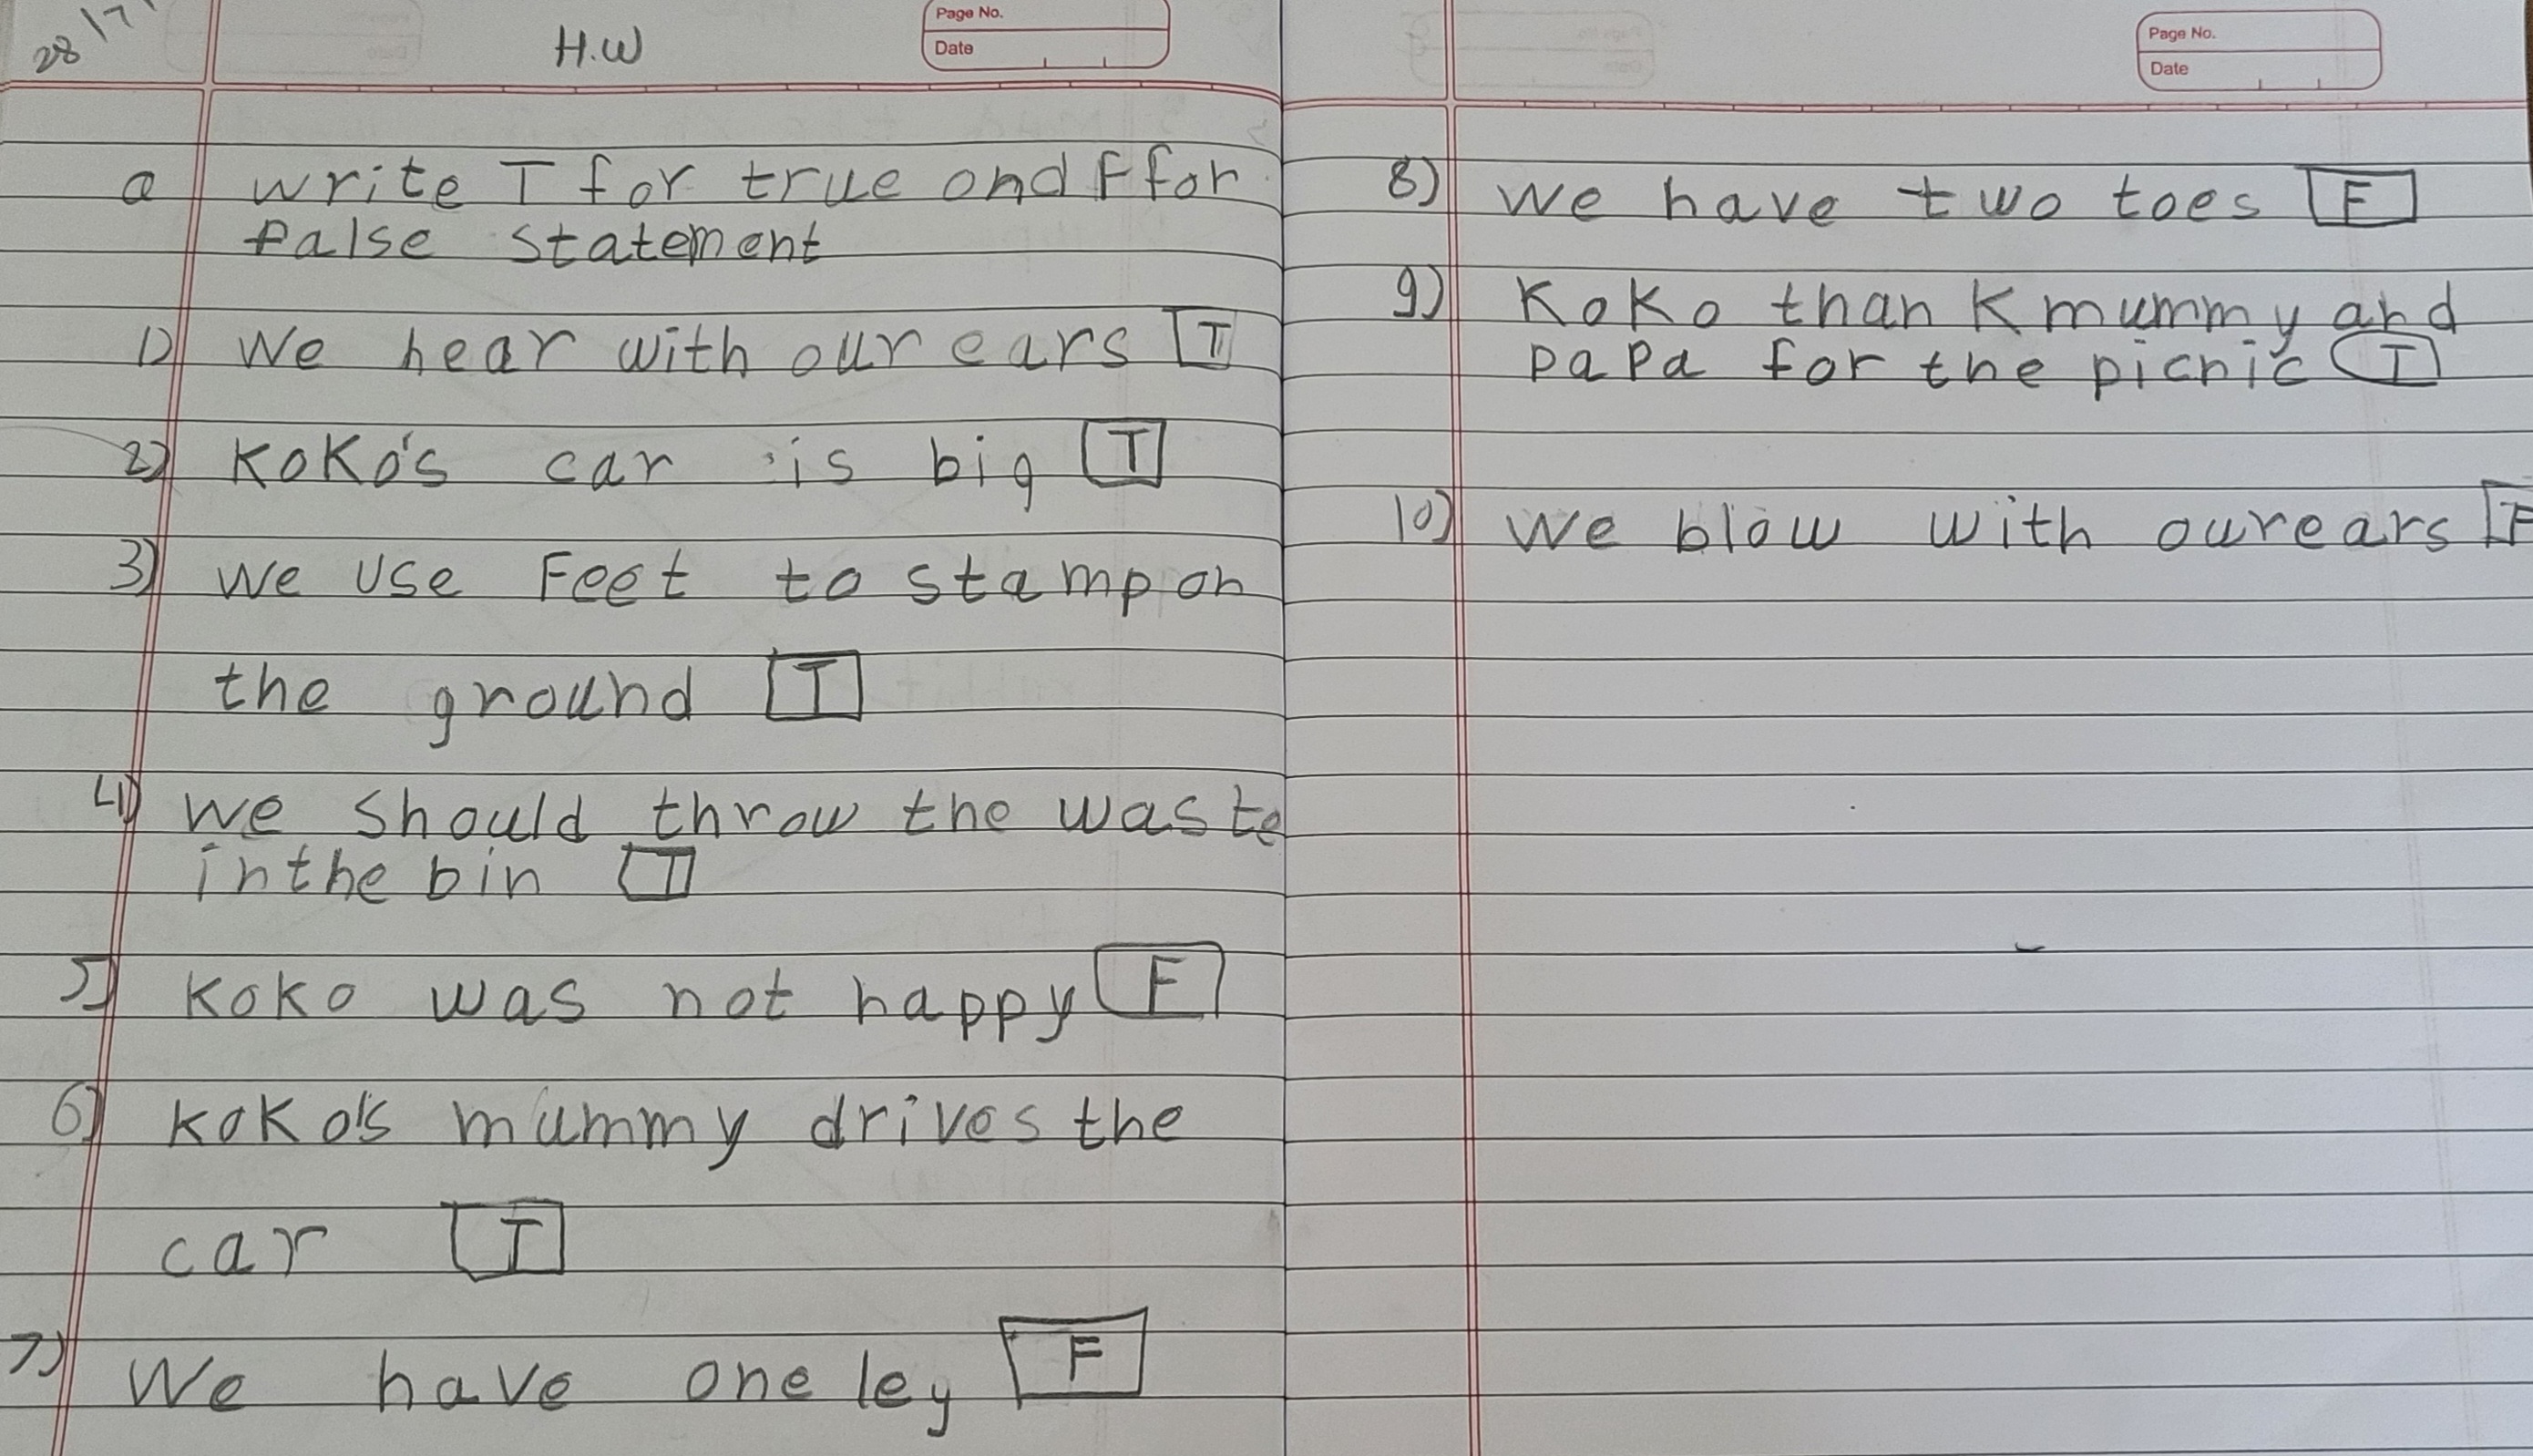 28/7
H.W
Page No.
Date
a write T for true and F for
false statement
1) We hear with our ears T
2) KoKo's car is big T
3) We use Feet to stamp on
the ground T
4) we should throw the waste
in the bin T
5) KoKo was not happy F
6) KoKo's mummy drives the
car T
7) We have one ley F
Page No.
Date
8) We have two toes F
9) KoKo than K mummy and
papa for the picnic T
10) We blow with our ears F